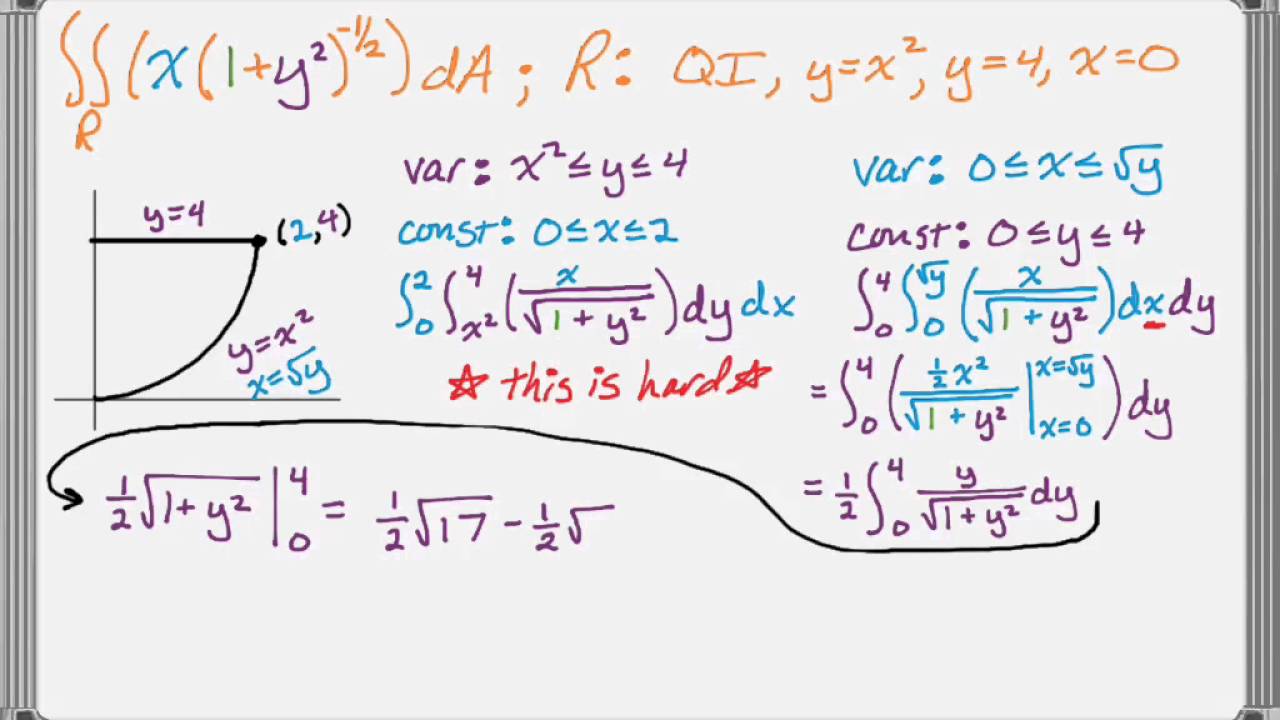 ∬_R (x(1+y²)^(-1/2)) dA ; R: QI, y=x², y=4, x=0
var: x² ≤ y ≤ 4
const: 0 ≤ x ≤ 2
∫₀² ∫_{x²}^4 (x/√(1+y²)) dy dx
☆ this is hard ☆
y=4
(2,4)
y=x²
x=√y
var: 0 ≤ x ≤ √y
const: 0 ≤ y ≤ 4
∫₀⁴ ∫₀^{√y} (x/√(1+y²)) dx dy
= ∫₀⁴ (½x²/√(1+y²) |_{x=0}^{x=√y}) dy
= ½ ∫₀⁴ y/√(1+y²) dy
½√(1+y²) |₀⁴ = ½√17 - ½√